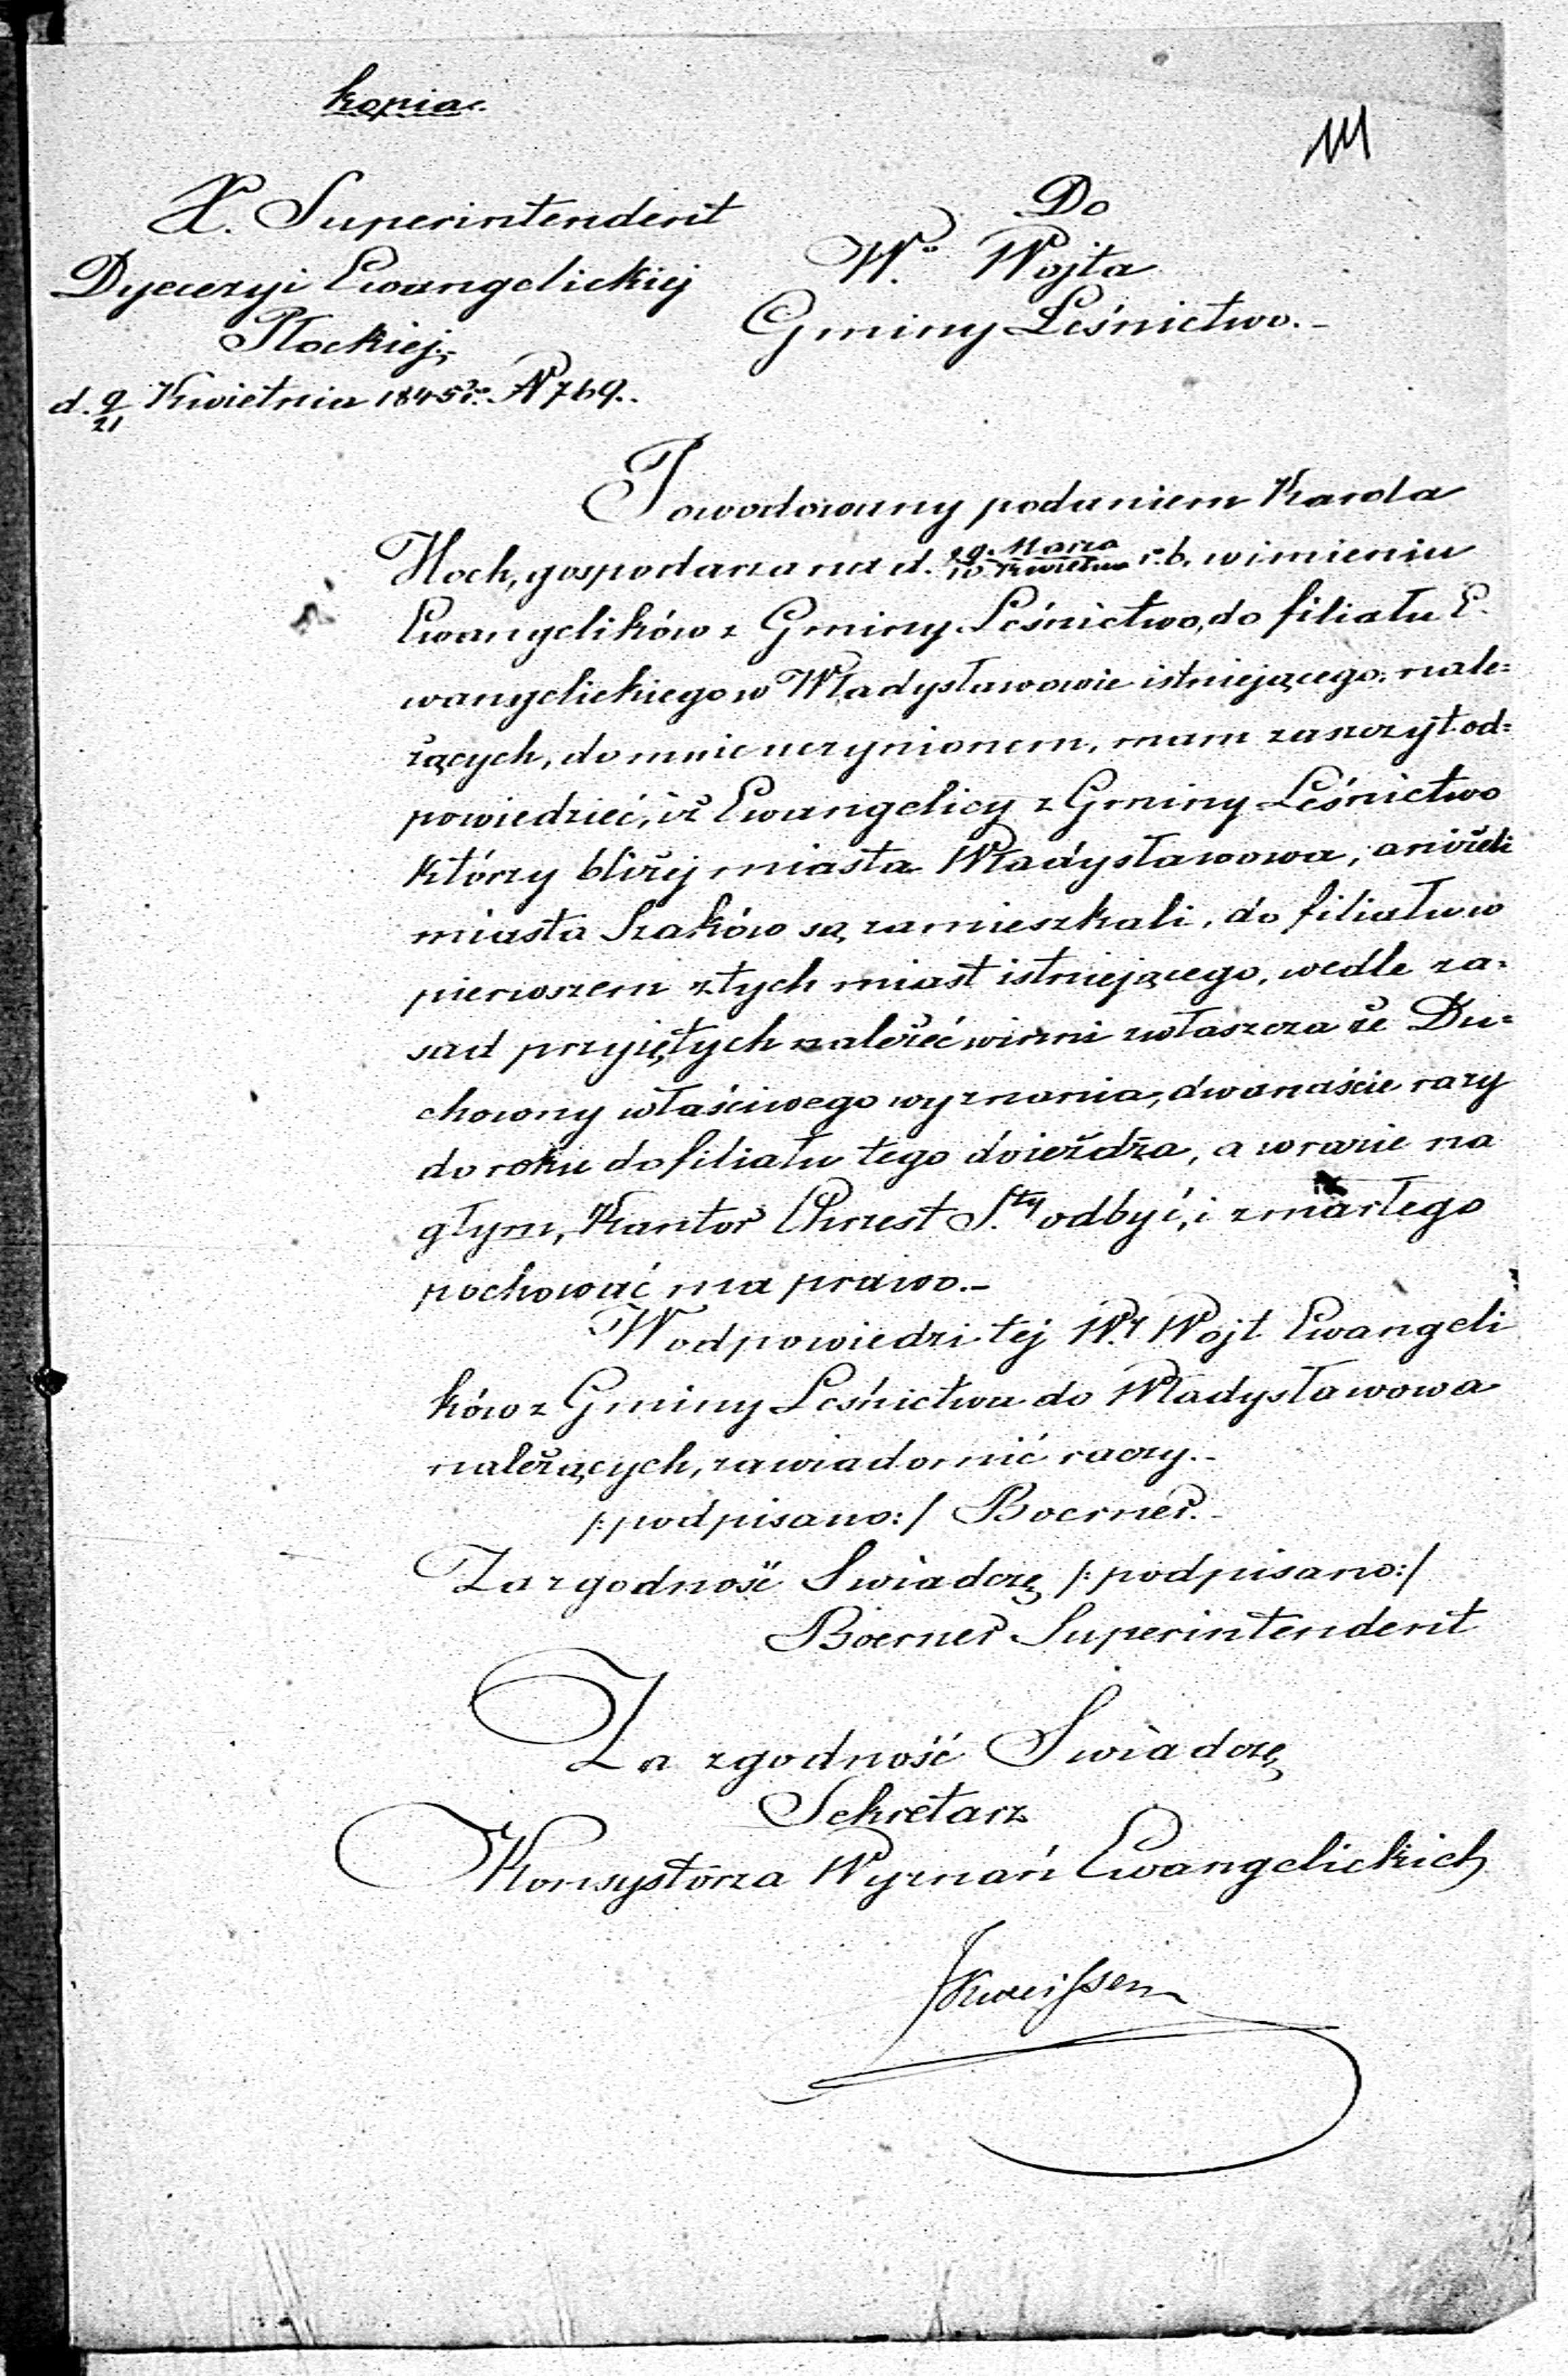 kopia.
111
X. Superintendent
Dyecezyi Ewangelickiej
Płockiej.
d. 9/21 Kwietnia 1845 r. N 769.
Do
Wo. Wojta
Gminy Leśnictwo.-
Powodowany podaniem Karola
Hoch, gospodarza na d. 29. Marca / 10 Kwietnia r. b. w imieniu
Ewangelików z Gminy Leśnictwo, do filiału E-
wangelickiego w Władysławowie istniejącego, nale=
żących, do mnie uczynionem, mam zaszczyt od=
powiedzieć, iż Ewangelicy z Gminy Leśnictwo
którzy bliżej miasta Władysławowa, aniżeli
miasta Szaków są zamieszkali, do filiału w
pierwszem z tych miast istniejącego, wedle za=
sad przyjętych należeć winni zwłaszcza że Du=
chowny właściwego wyznania, dwanaście razy
do roku do filiału tego dojeżdża, a w razie na
głym, Kantor Chrzest S.ty odbyć, i zmarłego
pochować ma prawo.-
W odpowiedzi tej W.y Wojt Ewangeli
ków z Gminy Leśnictwa do Władysławowa
należących, zawiadomić raczy.-
/:podpisano:/ Boerner.-
Za zgodność Swiadczę /:podpisano:/
Boerner Superintendent
Za zgodność Swiadczę
Sekretarz
Konsystorza Wyznań Ewangelickich